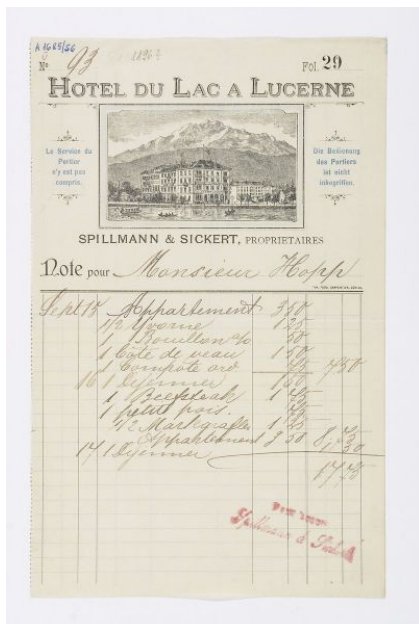 A 1665/56
No 93 1896?
Fol. 29
HOTEL DU LAC A LUCERNE
Le Service du Portier n'y est pas compris.
Die Bedienung des Portiers ist nicht inbegriffen.
SPILLMANN & SICKERT, PROPRIETAIRES
Note pour Monsieur Hopp
Sept 15 Appartement 3 50
1/2 Yvorne 1 25
1 Bouillon 50
1 Côte de veau 1 50
1 Compote 75 7 50
16 1 Dejeuner 1 50
1 Beefsteak 1 75
1 petit pois. 75
1/2 Markgräfler 1 25
Appartement 3 50 8 75
17 1 Dejeuner 1 50
17 75
Pour acquit
Spillmann & Sickert